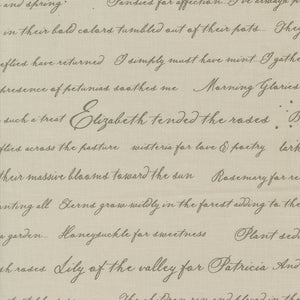 and spring Pansies for affection I've always p
in their bold colors tumbled out of their pots... They
eflies have returned I simply must have mint I gathe
presence of petunias soothes me Morning Glories
such a treat Elizabeth tended the roses
flies across the pasture wisteria for love & poetry lark
their massive blooms toward the sun Rosemary for re
nting all Ferns grow wildly in the forest adding to the
garden... Honeysuckle for sweetness Plant sed
h roses Lily of the valley for Patricia And